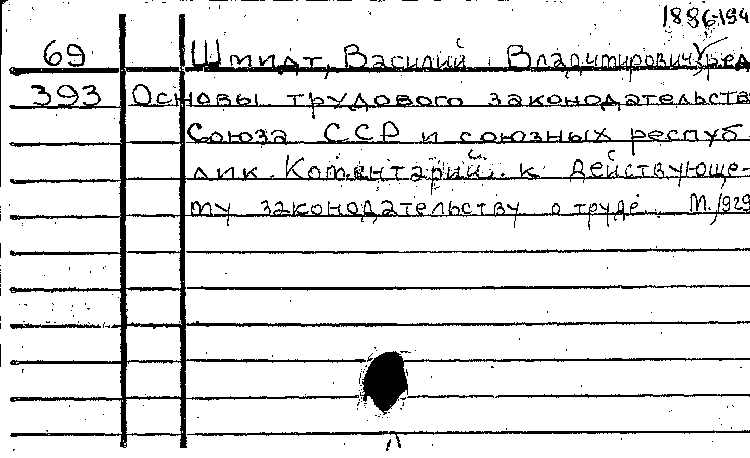 1886-194
69 Шмидт, Василий Владимирович, ред
393 Основы трудового законодательств
Союза ССР и союзных респуб
лик. Коментарий к действующе-
му законодательству о труде. М. 1929